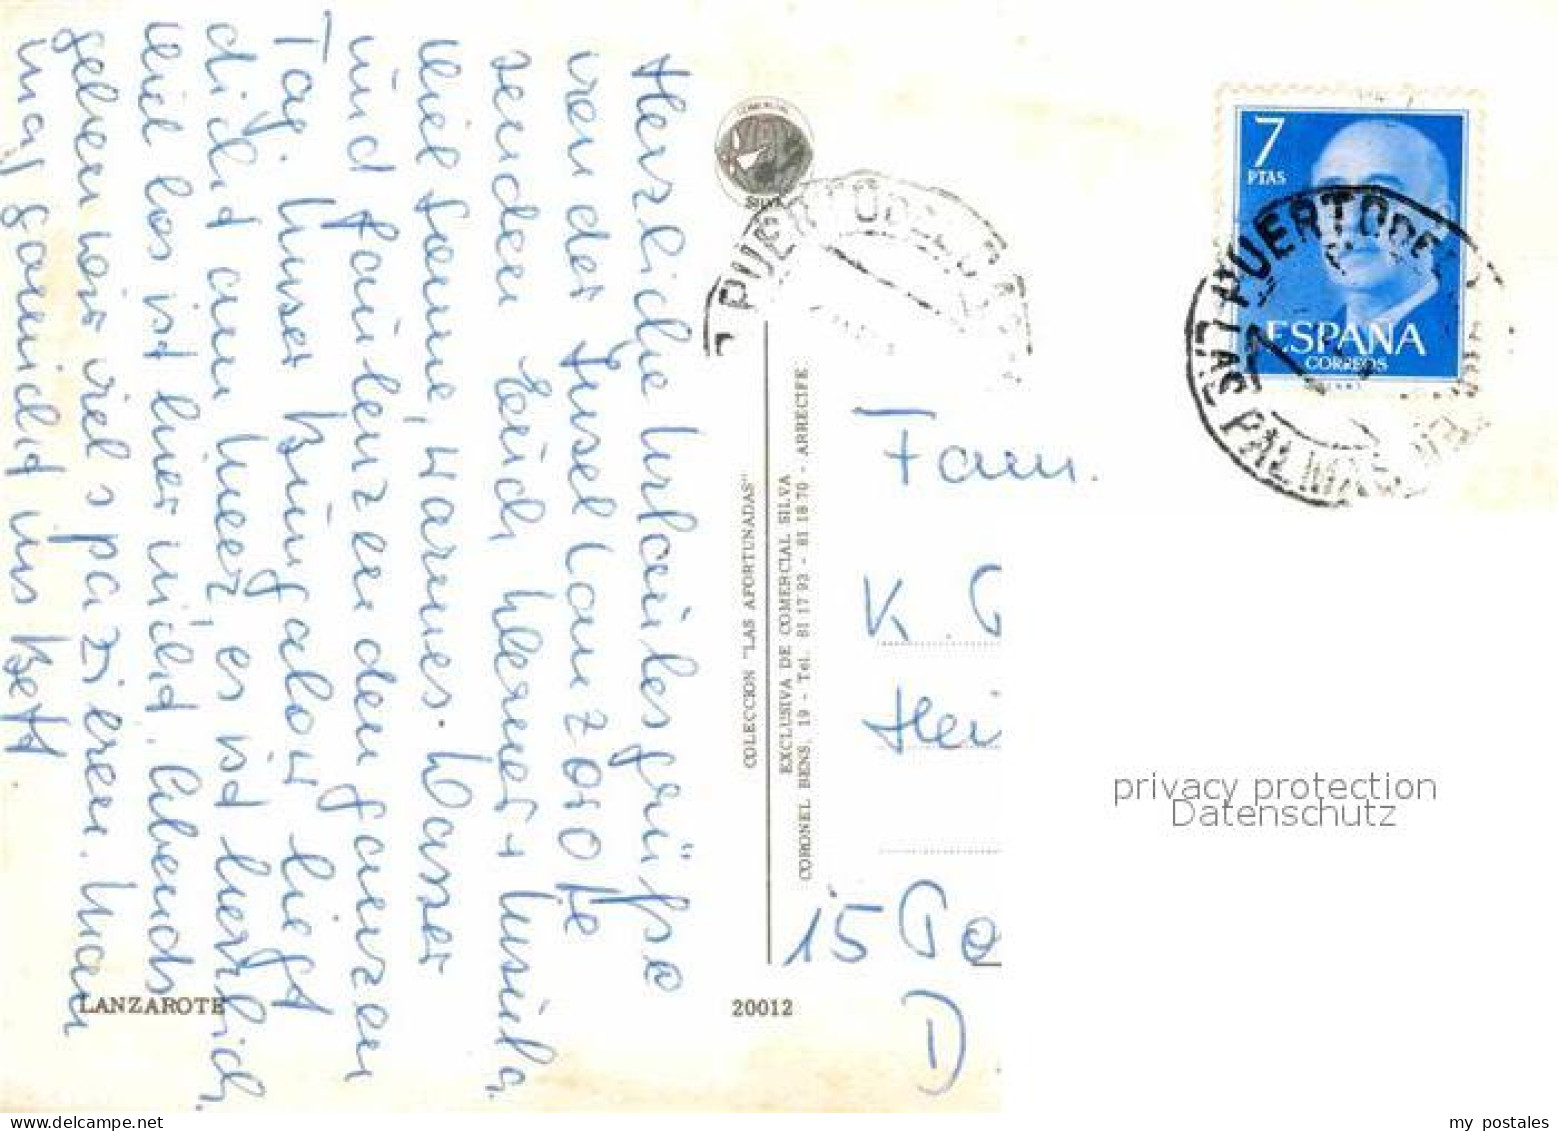 Herzliche Urlaubsgrüße
von der Insel Lanzarote
senden Euch Werner + Ursula.
Viel Sonne, warmes Wasser
und faulenzen den ganzen
Tag. Unser Bungalow liegt
dicht am Meer, es ist herrlich.
Viel los ist hier nicht. Abends
gehen wir viel spazieren. Man
mag gar nicht ins Bett.
LANZAROTE
SILVA
COLECCION "LAS AFORTUNADAS"
EXCLUSIVA DE COMERCIAL SILVA
CORONEL BENS, 19 - Tel. 81 17 93 - 81 18 70 - ARRECIFE
20012
PUERTO DE
7
PTAS
ESPANA
CORREOS
PUERTO DE
LAS PALMAS
Fam.
K.
Hei
15
D
privacy protection
Datenschutz
my postales